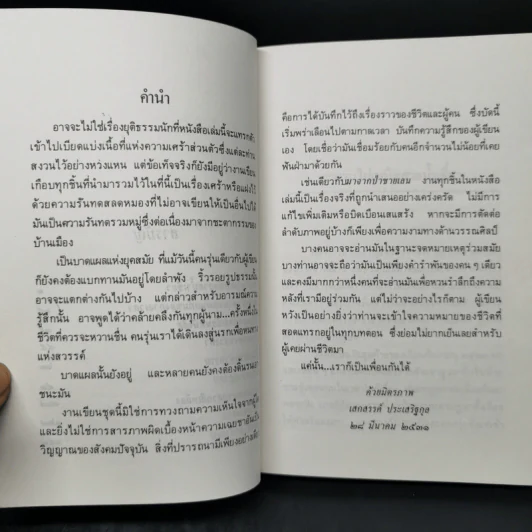 คำนำ
อาจจะไม่ใช่เรื่องยุติธรรมนักที่หนังสือเล่มนี้จะแทรกตัว
เข้าไปเบียดแบ่งเนื้อที่แห่งความเศร้าส่วนตัวซึ่งแต่ละท่าน
สงวนไว้อย่างหวงแหน แต่ข้อเท็จจริงก็ยังมีอยู่ว่างานเขียน
เกือบทุกชิ้นที่นำมารวมไว้ในที่นี้เป็นเรื่องเศร้าหรือแฝงไว้
ด้วยความรันทดสลดหมองที่ไม่อาจเขียนให้เป็นอื่นไปได้
มันเป็นความรันทดรวมหมู่ซึ่งต่อเนื่องมาจากชะตากรรมของ
บ้านเมือง
เป็นบาดแผลแห่งยุคสมัย ที่แม้วันนี้คนรุ่นเดียวกับผู้เขียน
ก็ยังคงต้องแบกทานมันอยู่โดยลำพัง ริ้วรอยรูปธรรมนั้น
อาจจะแตกต่างกันไปบ้าง แต่กล่าวสำหรับอารมณ์ความ
รู้สึกนั้น อาจพูดได้ว่าคล้ายคลึงกันทุกผู้นาม...ครั้งหนึ่งใน
ชีวิตที่ควรจะหวานชื่น คนรุ่นเราได้เดินลงสู่นรกเพื่อค้นหา
แห่งสวรรค์
บาดแผลนั้นยังอยู่ และหลายคนยังคงต้องดิ้นรนเอา
ชนะมัน
งานเขียนชุดนี้มิใช่การทวงถามความเห็นใจจากผู้ใด
และยิ่งไม่ใช่การสารภาพผิดเบื้องหน้าความเฉยชาอันเป็น
วิญญาณของสังคมปัจจุบัน สิ่งที่ปรารถนามีเพียงอย่างเดียว
คือการได้บันทึกไว้ถึงเรื่องราวของชีวิตและผู้คน ซึ่งบัดนี้
เริ่มพร่าเลือนไปตามกาลเวลา บันทึกความรู้สึกของผู้เขียน
เอง โดยเชื่อว่ามันเชื่อมร้อยกับคนอีกจำนวนไม่น้อยที่เคย
ฟันฝ่ามาด้วยกัน
เช่นเดียวกับมาจากป่าชายเลน งานทุกชิ้นในหนังสือ
เล่มนี้เป็นเรื่องจริงที่ถูกนำเสนออย่างเคร่งครัด ไม่มีการ
แก้ไขเพิ่มเติมหรือบิดเบือนเสแสร้ง หากจะมีการตัดต่อ
ลำดับภาพอยู่บ้างก็เพียงเพื่อความงามทางด้านวรรณศิลป์
บางคนอาจจะอ่านมันในฐานะจดหมายเหตุร่วมสมัย
บางท่านอาจจะถือว่ามันเป็นเพียงคำรำพันของคน ๆ เดียว
และคงมีมากกว่าหนึ่งคนที่จะอ่านมันเพื่อหวนรำลึกถึงความ
หลังที่เรามีอยู่ร่วมกัน แต่ไม่ว่าจะอย่างไรก็ตาม ผู้เขียน
หวังเป็นอย่างยิ่งว่าท่านจะเข้าใจความหมายของชีวิตที่
สอดแทรกอยู่ในทุกบทตอน ซึ่งย่อมไม่ยากเย็นเลยสำหรับ
ผู้เคยผ่านชีวิตมา
แค่นั้น...เราก็เป็นเพื่อนกันได้
ด้วยมิตรภาพ
เสกสรรค์ ประเสริฐกุล
๒๘ มีนาคม ๒๕๓๑